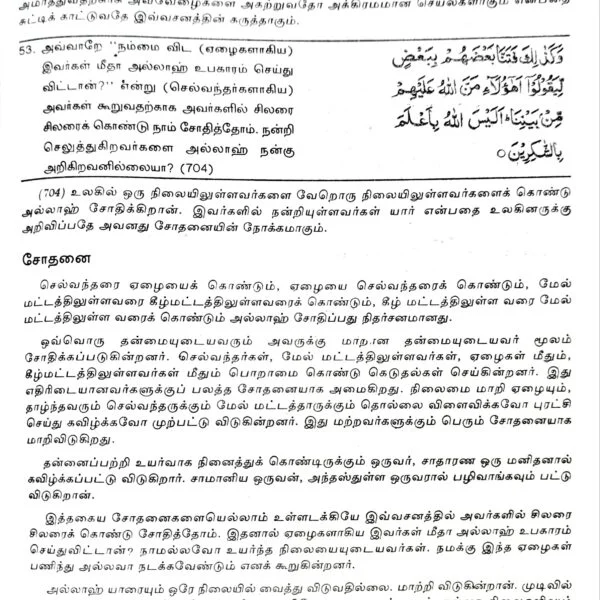 சுட்டிக் காட்டுவதே இவ்வசனத்தின் கருத்தாகும்.
53. அவ்வாறே "நம்மை விட (ஏழைகளாகிய)
இவர்கள் மீதா அல்லாஹ் உபகாரம் செய்து
விட்டான்?" என்று (செல்வந்தர்களாகிய)
அவர்கள் கூறுவதற்காக அவர்களில் சிலரை
சிலரைக் கொண்டு நாம் சோதித்தோம். நன்றி
செலுத்துகிறவர்களை அல்லாஹ் நன்கு
அறிகிறவனில்லையா? (704)
وَكَذٰلِكَ فَتَنَّا بَعْضَهُمْ بِبَعْضٍ
لِّيَقُوْلُوْٓا اَهٰٓؤُلَآءِ مَنَّ اللّٰهُ عَلَيْهِمْ
مِّنْۢ بَيْنِنَاؕ اَلَيْسَ اللّٰهُ بِاَعْلَمَ
بِالشّٰكِرِيْنَ ○
(704) உலகில் ஒரு நிலையிலுள்ளவர்களை வேறொரு நிலையிலுள்ளவர்களைக் கொண்டு
அல்லாஹ் சோதிக்கிறான். இவர்களில் நன்றியுள்ளவர்கள் யார் என்பதை உலகினருக்கு
அறிவிப்பதே அவனது சோதனையின் நோக்கமாகும்.
சோதனை
செல்வந்தரை ஏழையைக் கொண்டும், ஏழையை செல்வந்தரைக் கொண்டும், மேல்
மட்டத்திலுள்ளவரை கீழ்மட்டத்திலுள்ளவரைக் கொண்டும், கீழ் மட்டத்திலுள்ள வரை மேல்
மட்டத்திலுள்ள வரைக் கொண்டும் அல்லாஹ் சோதிப்பது நிதர்சனமானது.
ஒவ்வொரு தன்மையுடையவரும் அவருக்கு மாறான தன்மையுடையவர் மூலம்
சோதிக்கப்படுகின்றனர். செல்வந்தர்கள், மேல் மட்டத்திலுள்ளவர்கள், ஏழைகள் மீதும்,
கீழ்மட்டத்திலுள்ளவர்கள் மீதும் பொறாமை கொண்டு கெடுதல்கள் செய்கின்றனர். இது
எதிரிடையானவர்களுக்குப் பலத்த சோதனையாக அமைகிறது. நிலைமை மாறி ஏழையும்,
தாழ்ந்தவரும் செல்வந்தருக்கும் மேல் மட்டத்தாருக்கும் தொல்லை விளைவிக்கவோ புரட்சி
செய்து கவிழ்க்கவோ முற்பட்டு விடுகின்றனர். இது மற்றவர்களுக்கும் பெரும் சோதனையாக
மாறிவிடுகிறது.
தன்னைப்பற்றி உயர்வாக நினைத்துக் கொண்டிருக்கும் ஒருவர், சாதாரண ஒரு மனிதனால்
கவிழ்க்கப்பட்டு விடுகிறார். சாமானிய ஒருவன், அந்தஸ்துள்ள ஒருவரால் பழிவாங்கவும் பட்டு
விடுகிறான்.
இத்தகைய சோதனைகளையெல்லாம் உள்ளடக்கியே இவ்வசனத்தில் அவர்களில் சிலரை
சிலரைக் கொண்டு சோதித்தோம். இதனால் ஏழைகளாகிய இவர்கள் மீதா அல்லாஹ் உபகாரம்
செய்துவிட்டான்? நாமல்லவோ உயர்ந்த நிலையையுடையவர்கள். நமக்கு இந்த ஏழைகள்
பணிந்து அல்லவா நடக்கவேண்டும் எனக் கூறுகின்றனர்.
அல்லாஹ் யாரையும் ஒரே நிலையில் வைத்து விடுவதில்லை. மாற்றி விடுகிறான். முடிவில்